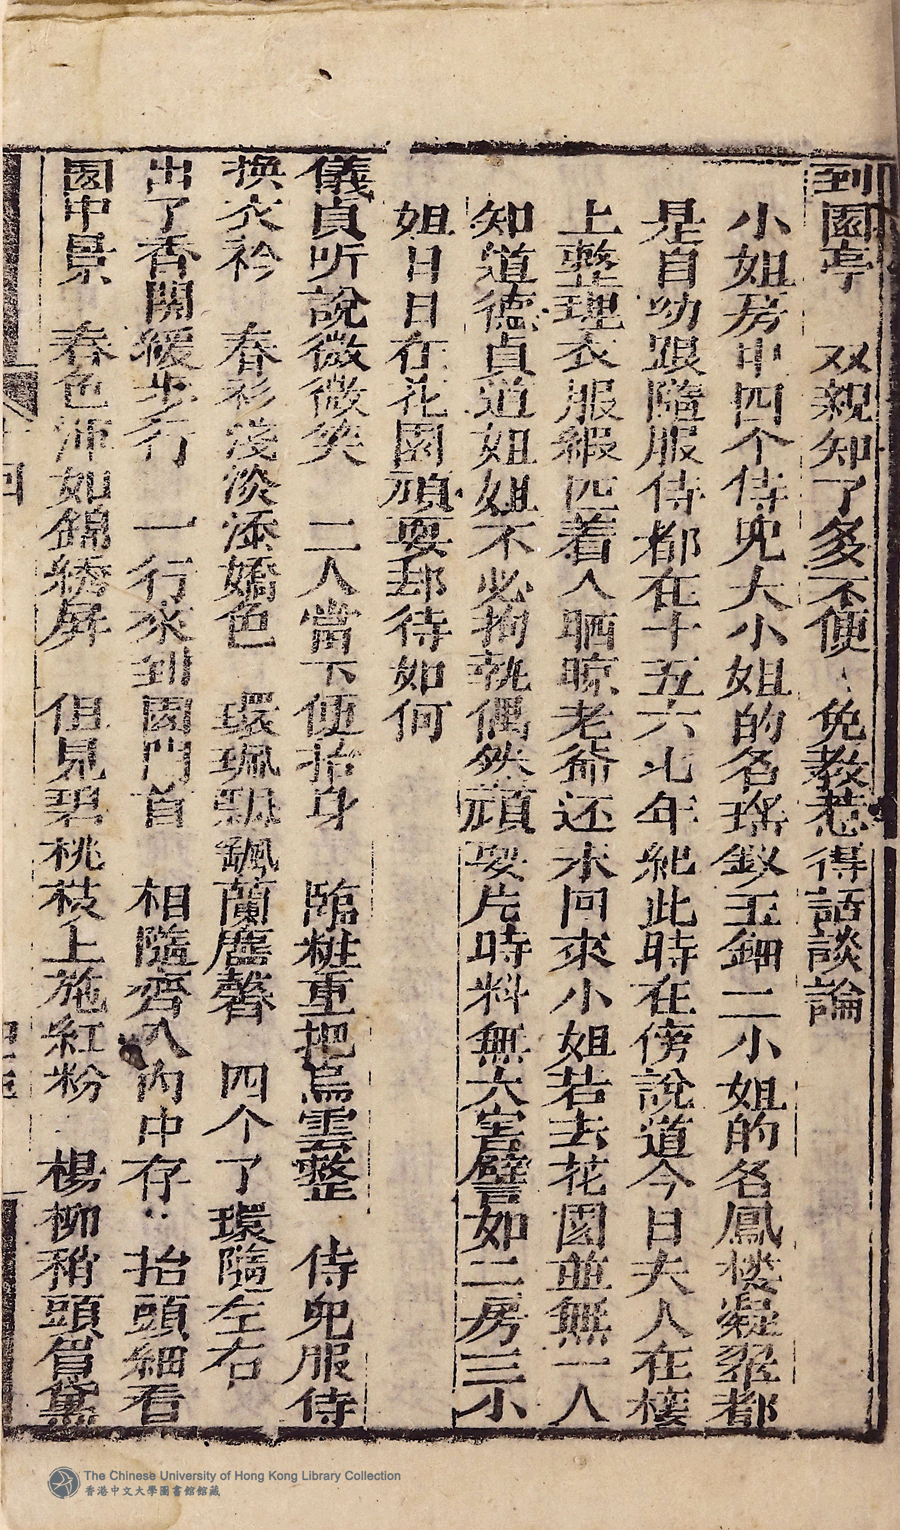 到園亭　双親知了多不便　免教惹得話談論
小姐房中四个侍兒大小姐的名瑤釵玉鈿二小姐的名鳳樓凝翠都
是自幼跟隨服侍都在十五六七年紀此時在傍說道今日夫人在樓
上整理衣服緞匹着人晒晾老爺还未回來小姐若去花園並無一人
知道德貞道姐姐不必拘執偶然頑耍片時料無大害譬如二房三小
姐日日在花園頑耍却待如何
儀貞听說微微笑　二人當下便抬身　臨粧重把烏雲整　侍兒服侍
換衣衿　春衫淺淡添嬌色　環珮飄颻蘭麝馨　四个了環隨左右
出了香閨緩步行　一行來到園門首　相隨齊入內中存　抬頭細看
園中景　春色渾如錦綉屏　但見碧桃枝上施紅粉　楊柳稍頭眉黛
The Chinese University of Hong Kong Library Collection
香港中文大學圖書館館藏